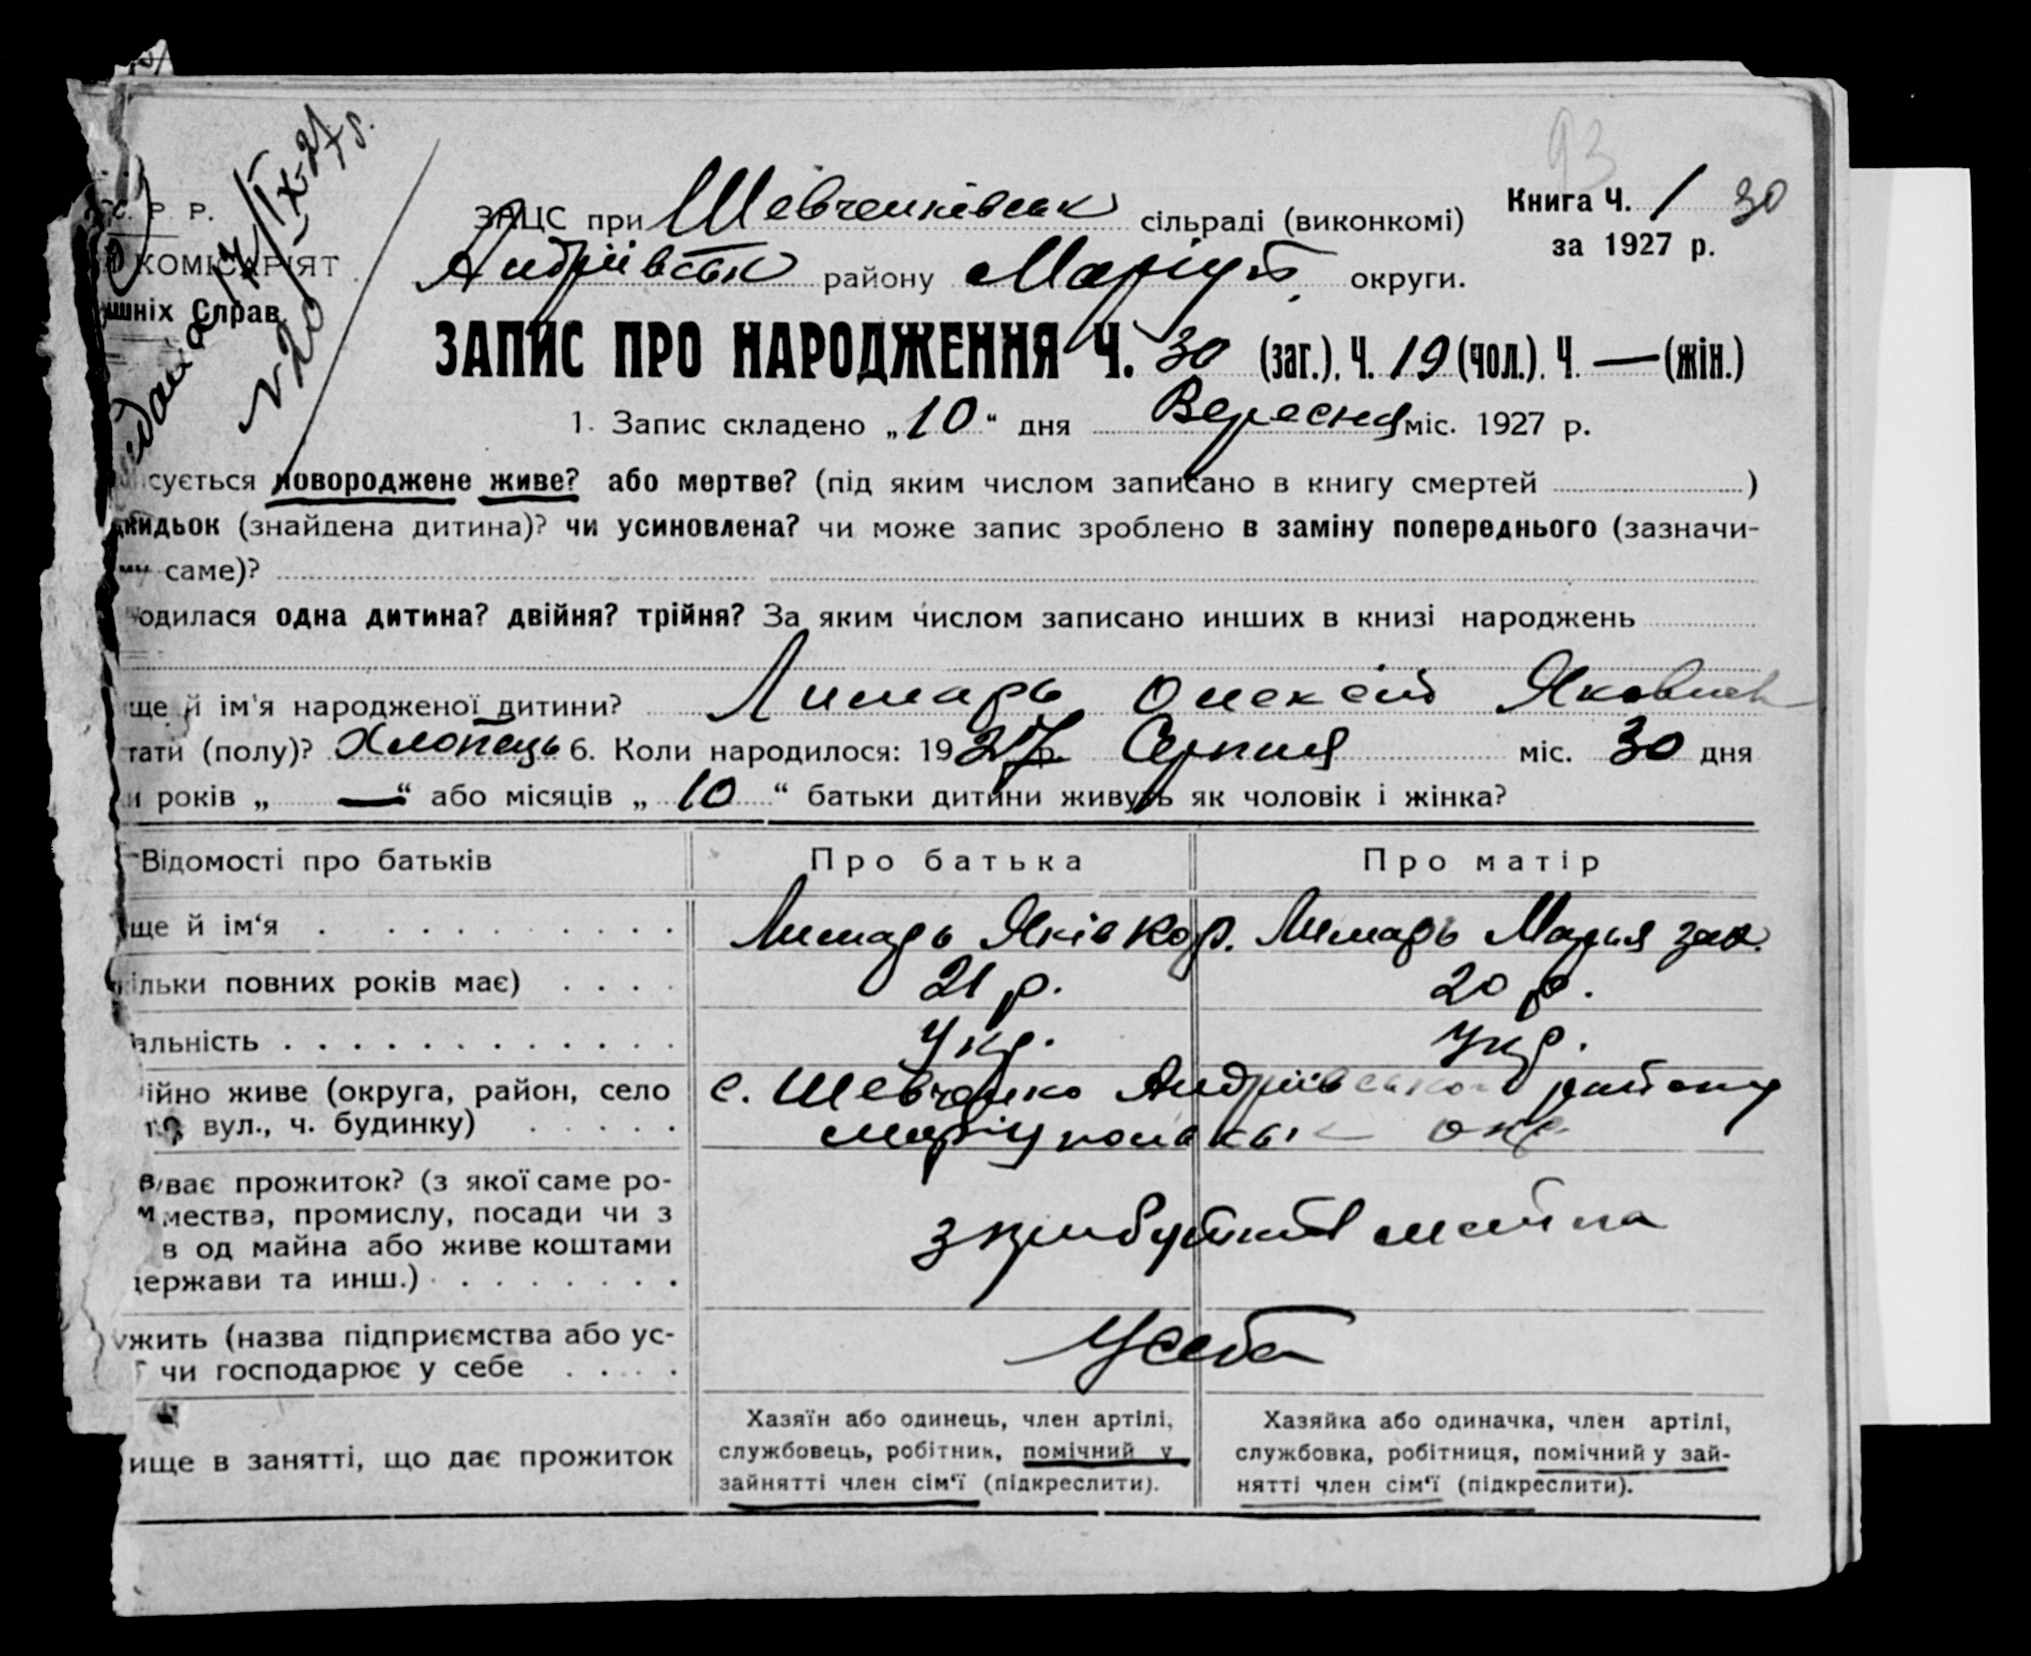 93
С. Р. Р.
КОМІСАРІЯТ
ішніх Справ
видана 17/ІХ-27 р.
№ 20
ЗАЦС при Шевченківськ сільраді (виконкомі)
Книга Ч. 1 30
за 1927 р.
Андріївськ району Маріуп. округи.
ЗАПИС ПРО НАРОДЖЕННЯ Ч. 30 (заг.). Ч. 19 (чол.). Ч. — (жін.)
1. Запис складено „10“ дня Вересня міс. 1927 р.
сується новороджене живе? або мертве? (під яким числом записано в книгу смертей )
кидьок (знайдена дитина)? чи усиновлена? чи може запис зроблено в заміну попереднього (зазначи-
саме)?
одилася одна дитина? двійня? трійня? За яким числом записано инших в книзі народжень
ще й ім'я народженої дитини? Лимарь Олексій Яковлев
тати (полу)? Хлопець 6. Коли народилося: 1927 р. Серпня міс. 30 дня
и років „ — “ або місяців „ 10 “ батьки дитини живуть як чоловік і жінка?
Відомості про батьків Про батька Про матір
ще й ім‘я Лимарь Яків Кор. Лимарь Марья зах.
ільки повних років має) 21 р. 20 р.
альність Укр. Укр.
ійно живе (округа, район, село с. Шевченко Андріївського району
вул., ч. будинку) Маріупольськ окр.
ває прожиток? (з якої саме ро-
мества, промислу, посади чи з з прибутків майна
в од майна або живе коштами
держави та инш.)
ужить (назва підприємства або ус- У себе
чи господарює у себе
ище в занятті, що дає прожиток
Хазяїн або одинець, член артілі,
службовець, робітник, помічний у
зайнятті член сім‘ї (підкреслити).
Хазяйка або одиначка, член артілі,
службовка, робітниця, помічний у зай-
нятті член сім‘ї (підкреслити).